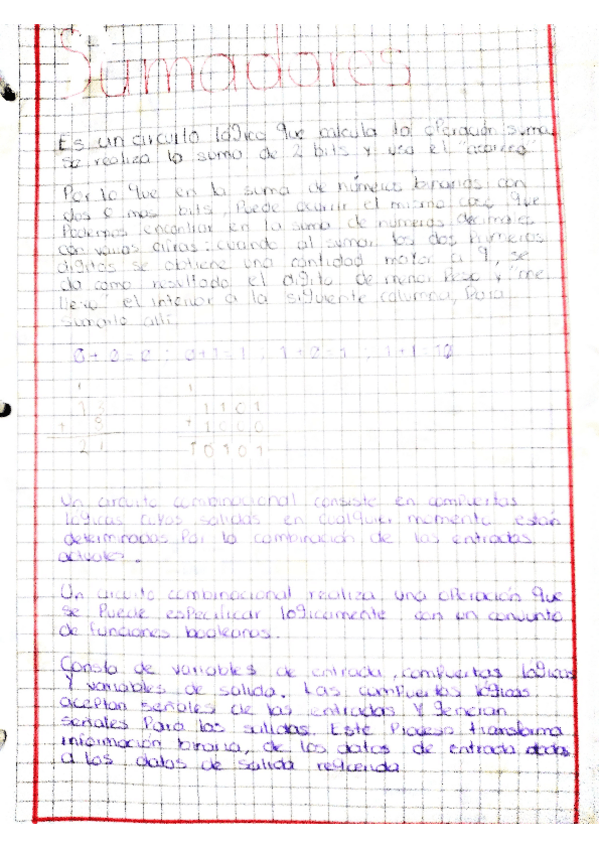 Sumadores
Es un circuito lógico que calcula la operación suma,
se realiza la suma de 2 bits y usa el "acarreo"
Por lo que en la suma de números binarios con
dos o mas bits, Puede ocurrir el mismo caso que
Podemos encontrar en la suma de números decimales
con varias cifras: cuando al sumar los dos números
digitos se obtiene una cantidad mayor a 9, se
da como resultado el digito de menor Peso y "me
llevo" el interior a la siguiente columna, Para
sumarlo alli.
0+0=0 ; 0+1=1 ; 1+0=1 ; 1+1=10
1 1
1 1101
+ 8 + 1000
2 1 10101
Un circuito combinacional consiste en compuertas
lógicas cuyas salidas en cualquier momento están
determinadas Por la combinación de las entradas
actuales.
Un circuito combinacional realiza una operación que
se Puede especificar lógicamente con un conjunto
de funciones booleanas.
Consta de variables de entrada, compuertas lógicas
Y variables de salida. Las compuertas lógicas
aceptan señales de las entradas Y generan
señales Para las salidas. Este Proceso transforma
información binaria, de los datos de entrada dados
a los datos de salida requerida